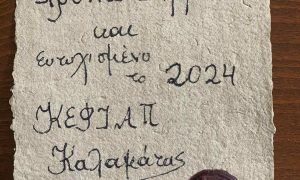 και
ευτυχισμένο
το 2024
ΚΕΦΙΑΠ
Καλαμάτας